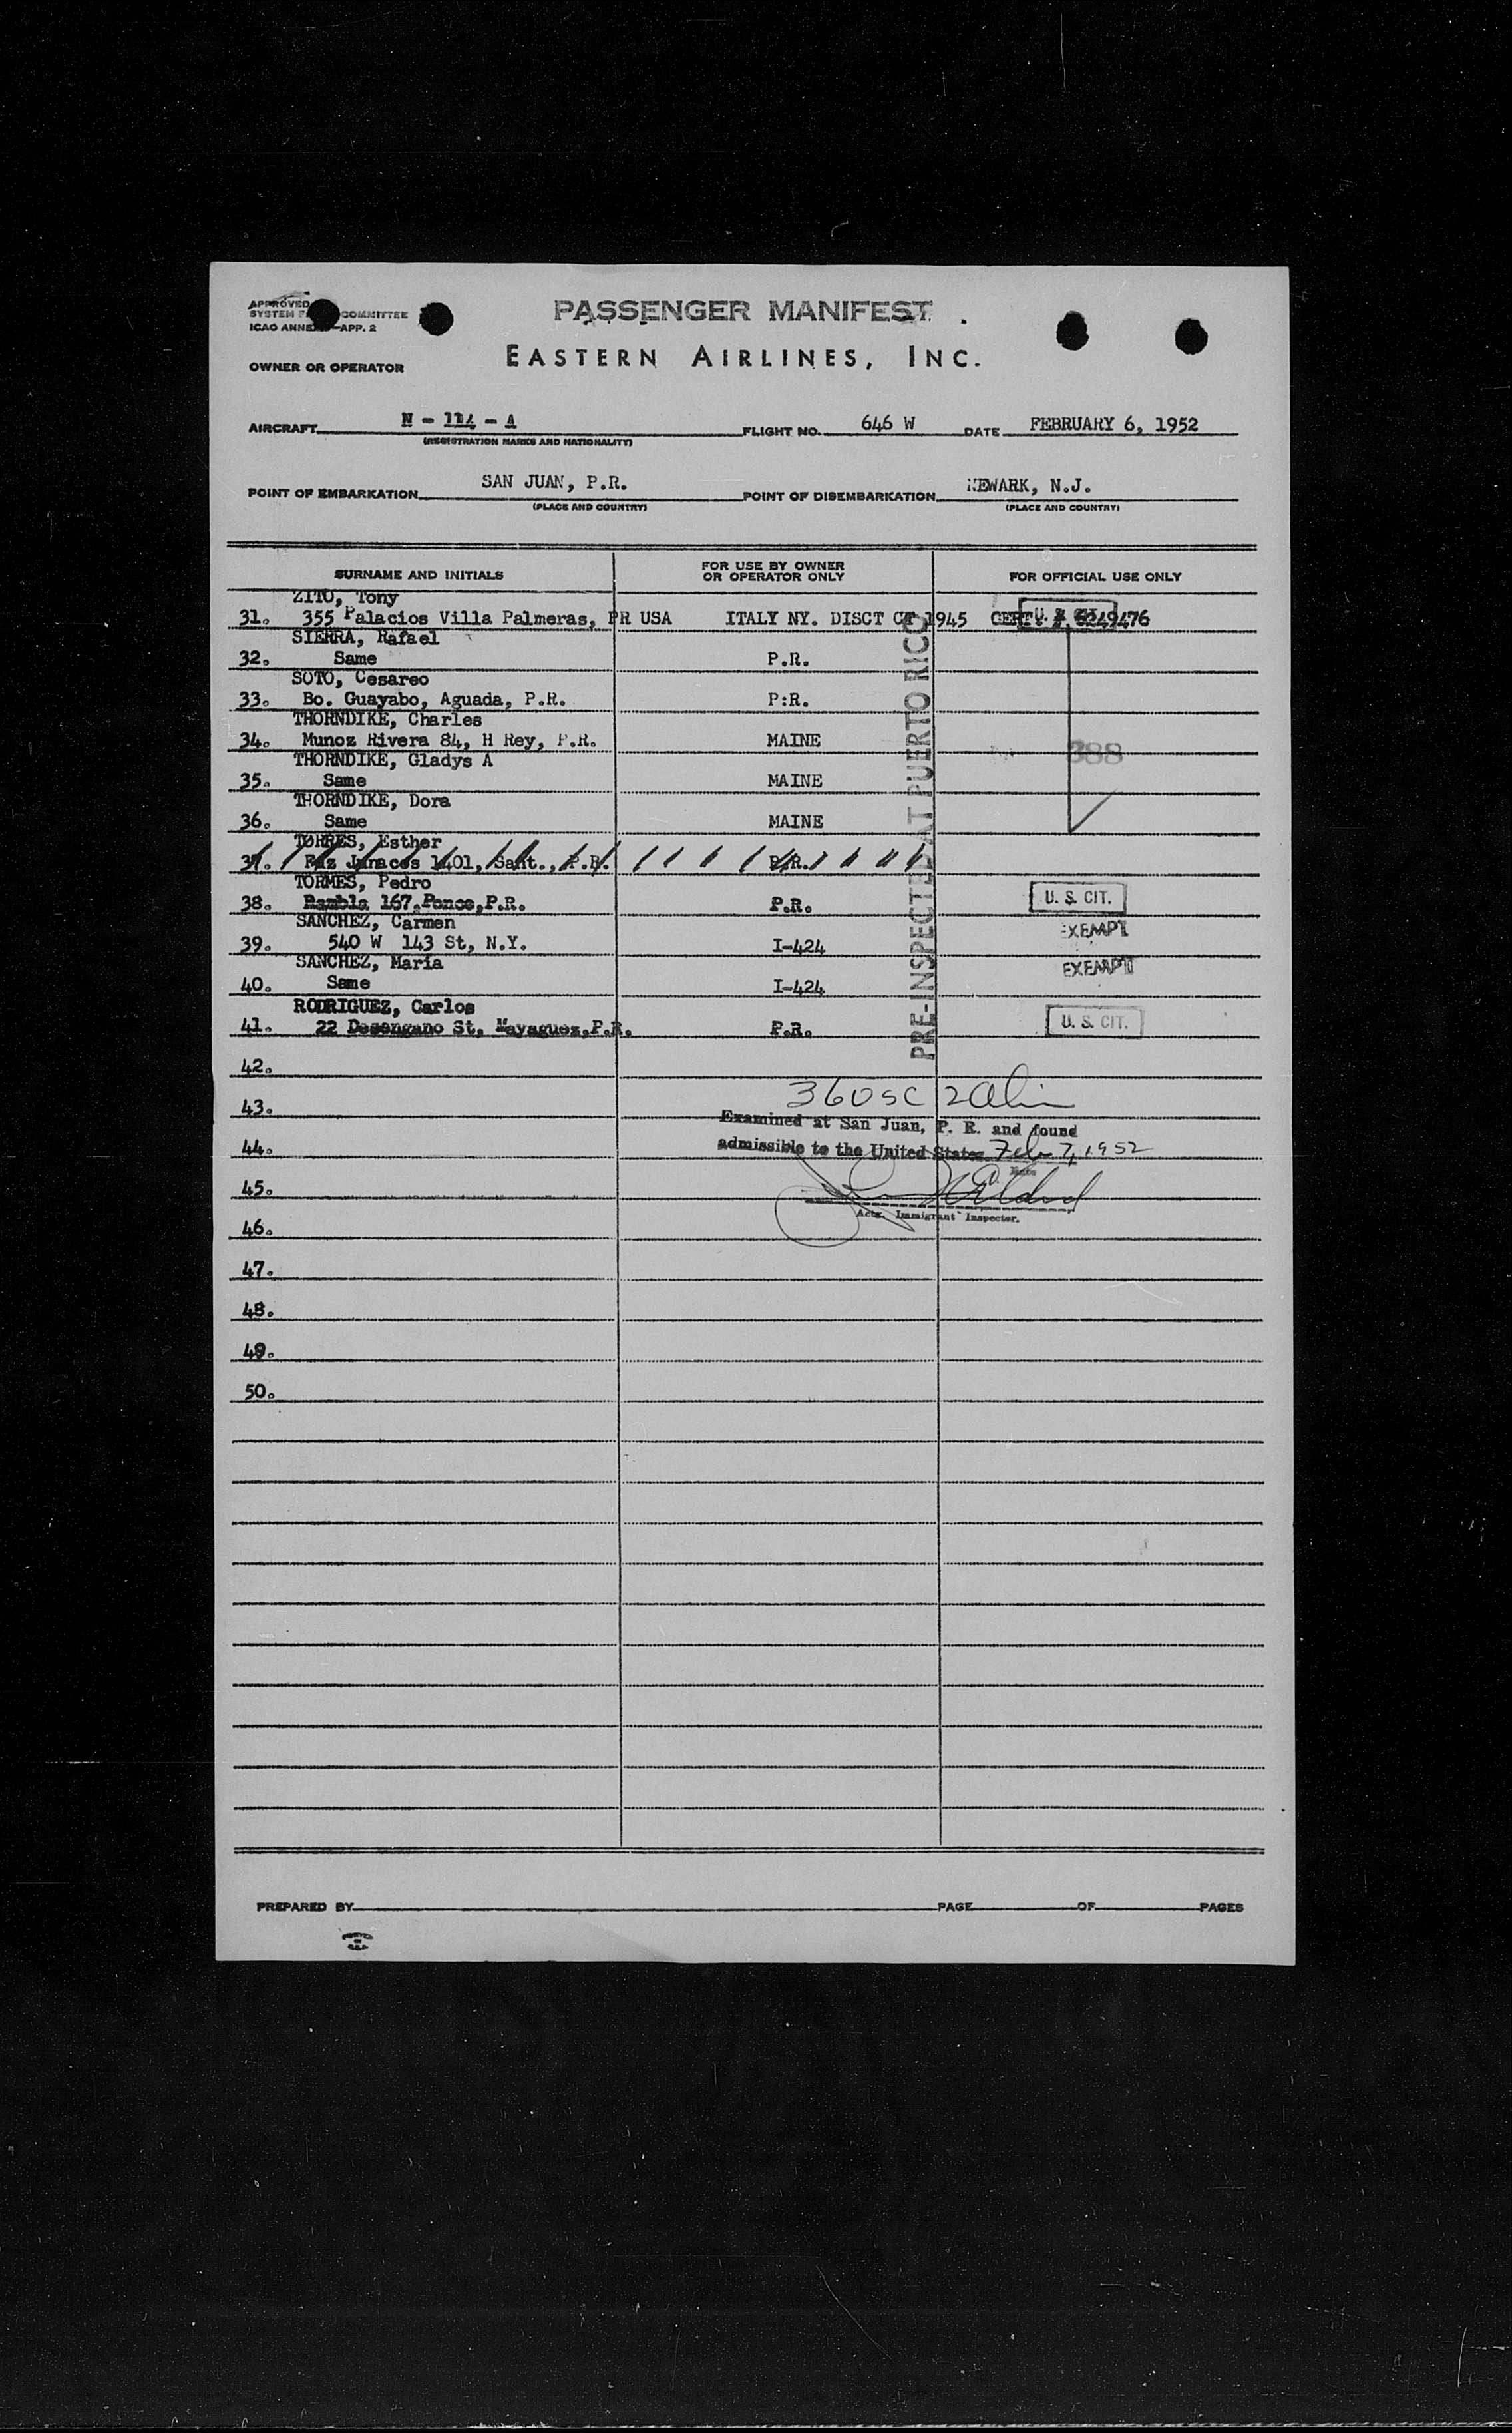 APPROVED
SYSTEM COMMITTEE
ICAO ANNEX APP. 2
PASSENGER MANIFEST
OWNER OR OPERATOR
EASTERN AIRLINES, INC.
AIRCRAFT N - 114 - A FLIGHT NO. 646 W DATE FEBRUARY 6, 1952
(REGISTRATION MARKS AND NATIONALITY)
POINT OF EMBARKATION SAN JUAN, P.R. POINT OF DISEMBARKATION NEWARK, N.J.
(PLACE AND COUNTRY) (PLACE AND COUNTRY)
SURNAME AND INITIALS FOR USE BY OWNER OR OPERATOR ONLY FOR OFFICIAL USE ONLY
ZITO, Tony
31. 355 Palacios Villa Palmeras, PR USA ITALY NY. DISCT CT 1945 CERT. 6249476
SIERRA, Rafael
32. Same P.R.
SOTO, Cesareo
33. Bo. Guayabo, Aguada, P.R. P:R.
THORNDIKE, Charles
34. Munoz Rivera 84, H Rey, P.R. MAINE 388
THORNDIKE, Gladys A
35. Same MAINE
THORNDIKE, Dora
36. Same MAINE
TORRES, Esther
37. 1401, Sant., P.R. P.R.
TORMES, Pedro
38. Rambla 167,Ponce,P.R. P.R. U. S. CIT.
SANCHEZ, Carmen
39. 540 W 143 St, N.Y. I-424 EXEMPT
SANCHEZ, Maria
40. Same I-424 EXEMPT
RODRIGUEZ, Carlos
41. 22 Desengano St, Mayaguez,P.R. P.R. U. S. CIT.
PRE-INSPECTED AT PUERTO RICO
42.
43. 36 USC 2 Alien
Examined at San Juan, P. R. and found
44. admissible to the United States Feb 7, 1952
Date
45.
Actg. Immigrant Inspector.
46.
47.
48.
49.
50.
PREPARED BY PAGE OF PAGES
PRINTED
IN
U.S.A.